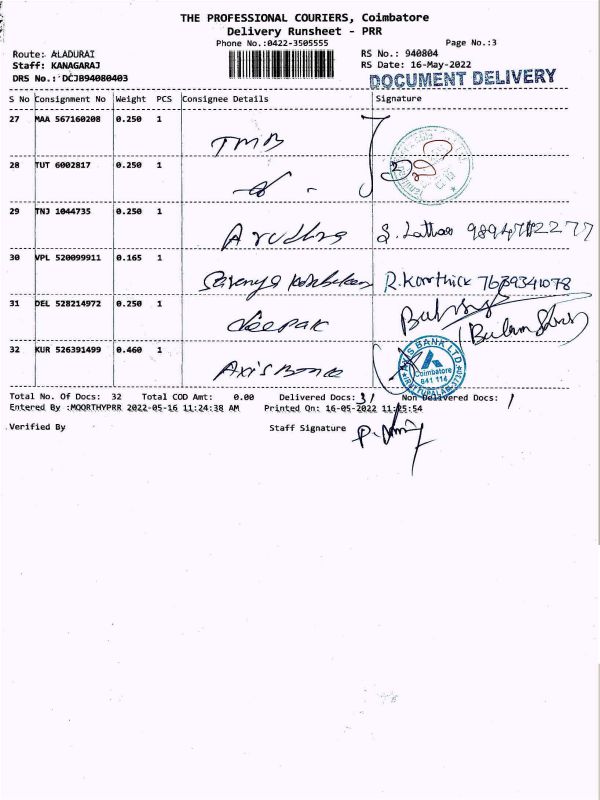 THE PROFESSIONAL COURIERS, Coimbatore
Delivery Runsheet - PRR
Phone No.:0422-3505555 Page No.:3
Route: ALADURAI RS No.: 940804
Staff: KANAGARAJ RS Date: 16-May-2022
DRS No.: DCJB94080403 DOCUMENT DELIVERY
S No Consignment No Weight PCS Consignee Details Signature
27 MAA 567160208 0.250 1 TMB
28 TUT 6002817 0.250 1
29 TNJ 1044735 0.250 1
30 VPL 520099911 0.165 1 R.Karthick 7639341078
31 DEL 528214972 0.250 1 deepak
32 KUR 526391499 0.460 1 Axis Bank
AXIS BANK LTD.
Coimbatore
641 114
Total No. Of Docs: 32 Total COD Amt: 0.00 Delivered Docs: 31 Non Delivered Docs: 1
Entered By :MOORTHYPRR 2022-05-16 11:24:38 AM Printed On: 16-05-2022 11:25:54
Verified By Staff Signature